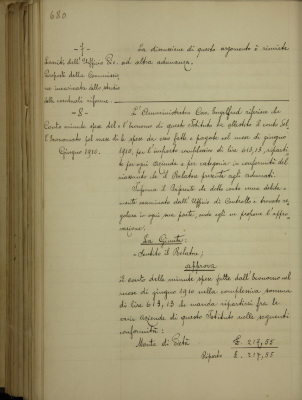 680
- 7 -
Lavori dell'Ufficio Tec.
Proposte della Commissio
ne incaricata dello studio
delle eventuali riforme.
La discussione di questo argomento è rinviata
ad altra adunanza.
- 8 -
Conto minute spese del
l'Economato pel mese di
Giugno 1910.
L'Amministratore Cav. Engelfred riferisce che
l'Economo di questo Istituto ha allestito il conto del
le spese da esso fatte e pagate nel mese di giugno
1910, per l'importo complessivo di lire 613,13, riparti
to per ogni Azienda e per categoria in conformità del
riassunto che il Relatore presenta agli adunati.
Informa il Riferente che detto conto venne debita-
mente esaminato dall'Ufficio di Controllo e trovato re
golare in ogni sua parte, onde egli ne propone l'appro
vazione.
La Giunta;
- Sentito il Relatore;
approva
il conto delle minute spese fatte dall'Economo nel
mese di giugno 1910 nella complessiva somma
di lire 613,13 che manda ripartirsi fra le
varie Aziende di questo Istituto nelle seguenti
conformità:
Monte di Pietà £. 217,55
Riporto £. 217,55